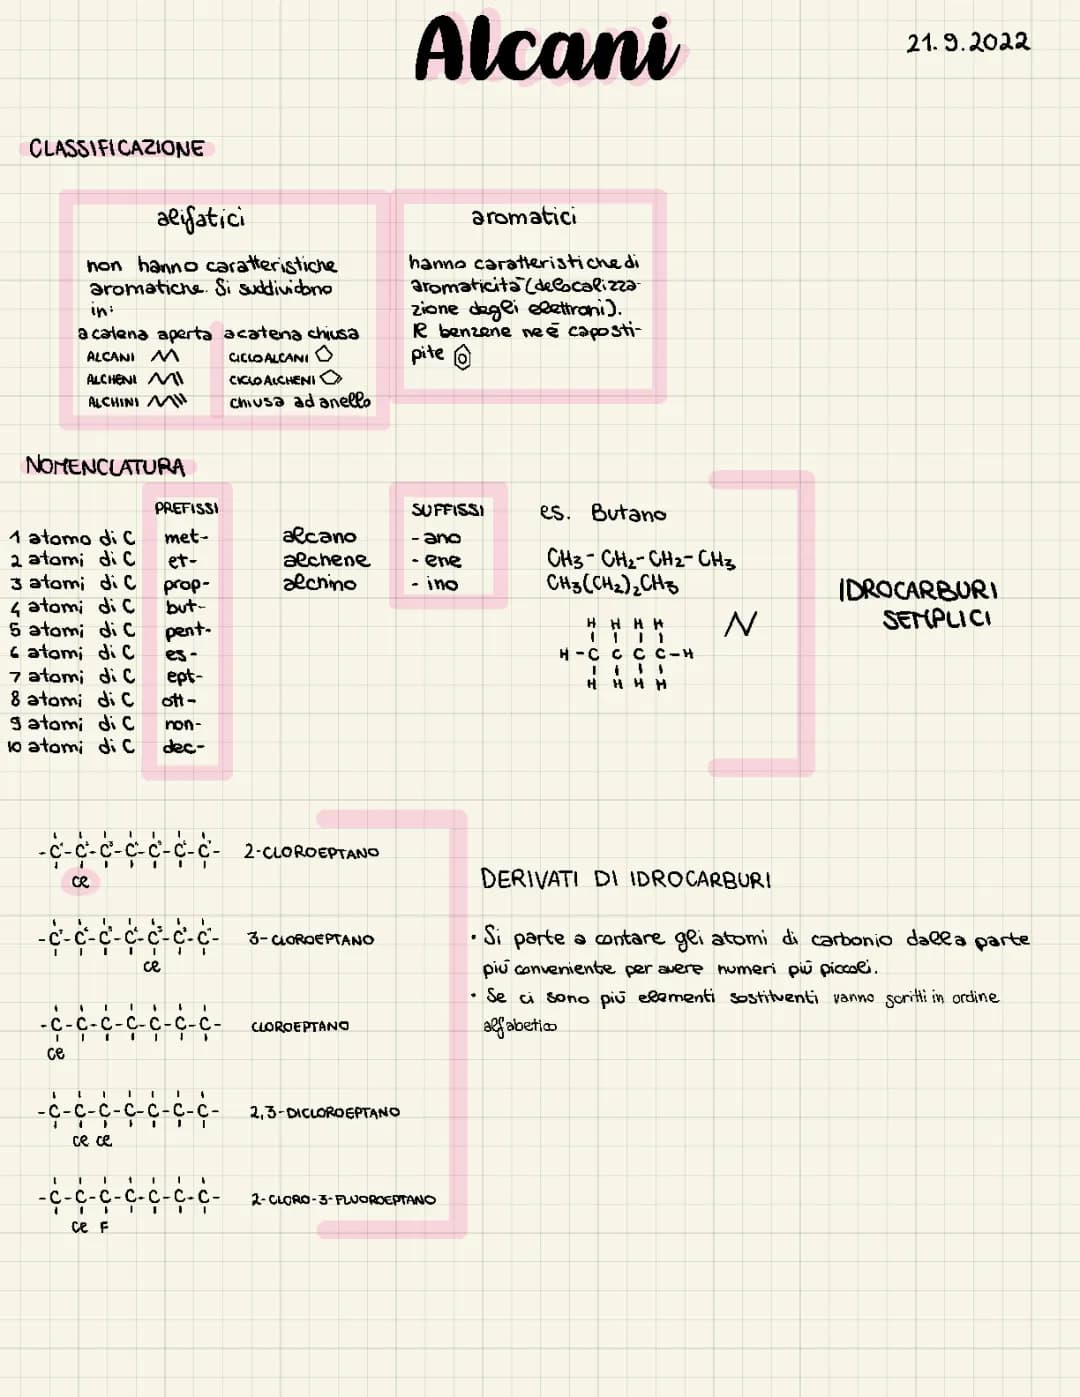 Alcani
21.9.2022
CLASSIFICAZIONE
alifatici
non hanno caratteristiche
aromatiche. Si suddividono
in:
a catena aperta
ALCANI
ALCHENI
ALCHINI
a catena chiusa
CICLOALCANI
CICLOALCHENI
chiusa ad anello
aromatici
hanno caratteristiche di
aromaticità (delocalizza-
zione degli elettroni).
Il benzene ne è caposti-
pite
NOMENCLATURA
PREFISSI
1 atomo di C met-
2 atomi di C et-
3 atomi di C prop-
4 atomi di C but-
5 atomi di C pent-
6 atomi di C es-
7 atomi di C ept-
8 atomi di C ott-
9 atomi di C non-
10 atomi di C dec-
SUFFISSI
alcano -ano
alchene -ene
alchino -ino
es. Butano
CH3-CH2-CH2-CH3
CH3(CH2)2CH3
H H H H
H-C C C C-H
H H H H
IDROCARBURI
SEMPLICI
-C¹-C²-C³-C⁴-C⁵-C⁶-C⁷- 2-CLOROEPTANO
Cl
-C⁷-C⁶-C⁵-C⁴-C³-C²-C¹- 3-CLOROEPTANO
Cl
-C-C-C-C-C-C-C- CLOROEPTANO
Cl
-C-C-C-C-C-C-C- 2,3-DICLOROEPTANO
Cl Cl
-C-C-C-C-C-C-C- 2-CLORO-3-FLUOROEPTANO
Cl F
DERIVATI DI IDROCARBURI
• Si parte a contare gli atomi di carbonio dalla parte
più conveniente per avere numeri più piccoli.
• Se ci sono più elementi sostituenti vanno scritti in ordine
alfabetico